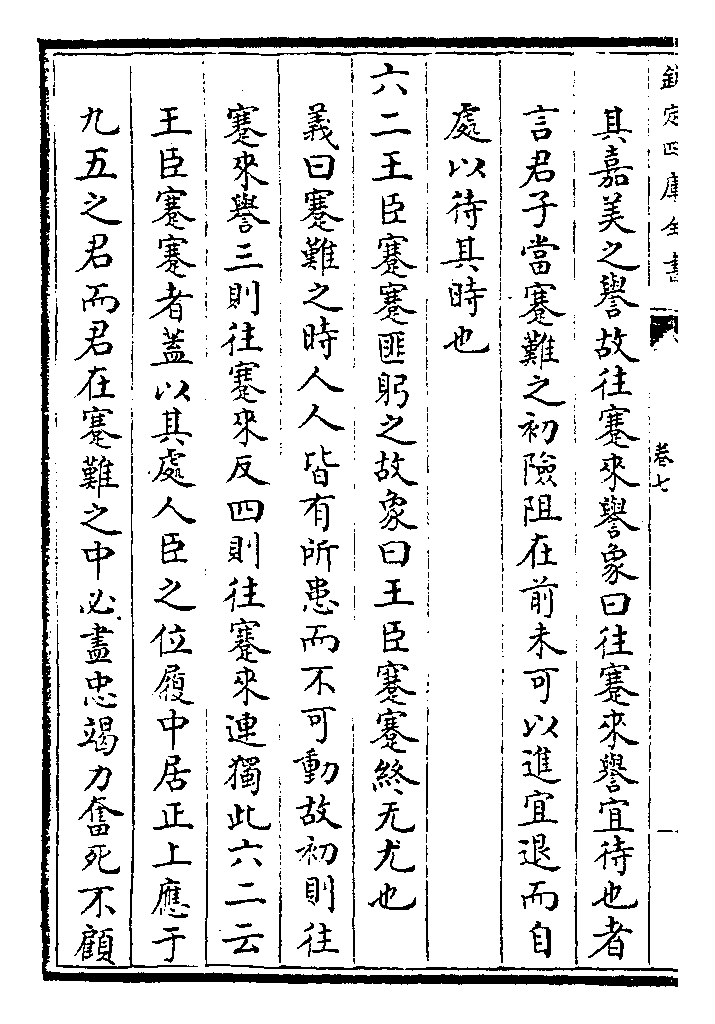 欽定四庫全書
卷七
其嘉美之譽故往蹇來譽象曰往蹇來譽宜待也者
言君子當蹇難之初險阻在前未可以進宜退而自
處以待其時也
六二王臣蹇蹇匪躬之故象曰王臣蹇蹇終无尤也
義曰蹇難之時人人皆有所患而不可動故初則往
蹇來譽三則往蹇來反四則往蹇來連獨此六二云
王臣蹇蹇者蓋以其處人臣之位履中居正上應于
九五之君而君在蹇難之中必盡忠竭力奮死不顧